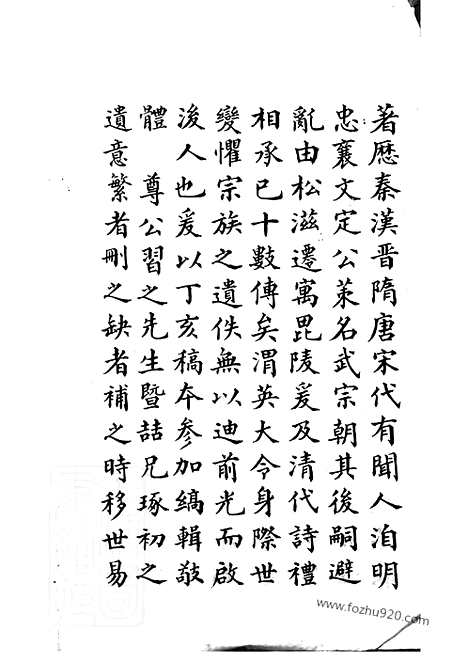 著歷秦漢晉隋唐宋代有聞人洎明
忠襄文定公策名武宗朝其後嗣避
亂由松滋遷寓毘陵爰及清代詩禮
相承已十數傳矣渭英大令身際世
變懼宗族之遺佚無以迪前光而啟
後人也爰以丁亥稿本參加編輯敬
體　尊公習之先生暨喆兄琢初之
遺意繁者刪之缺者補之時移世易
www.fozhu920.com